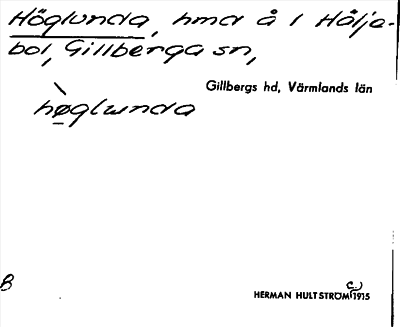 Höglunda, hmd å 1 Hålje-
bol, Gillberga sn,
Gillbergs hd, Värmlands län
hø̀glunda
B
HERMAN HULTSTRÖM (c.) 1915